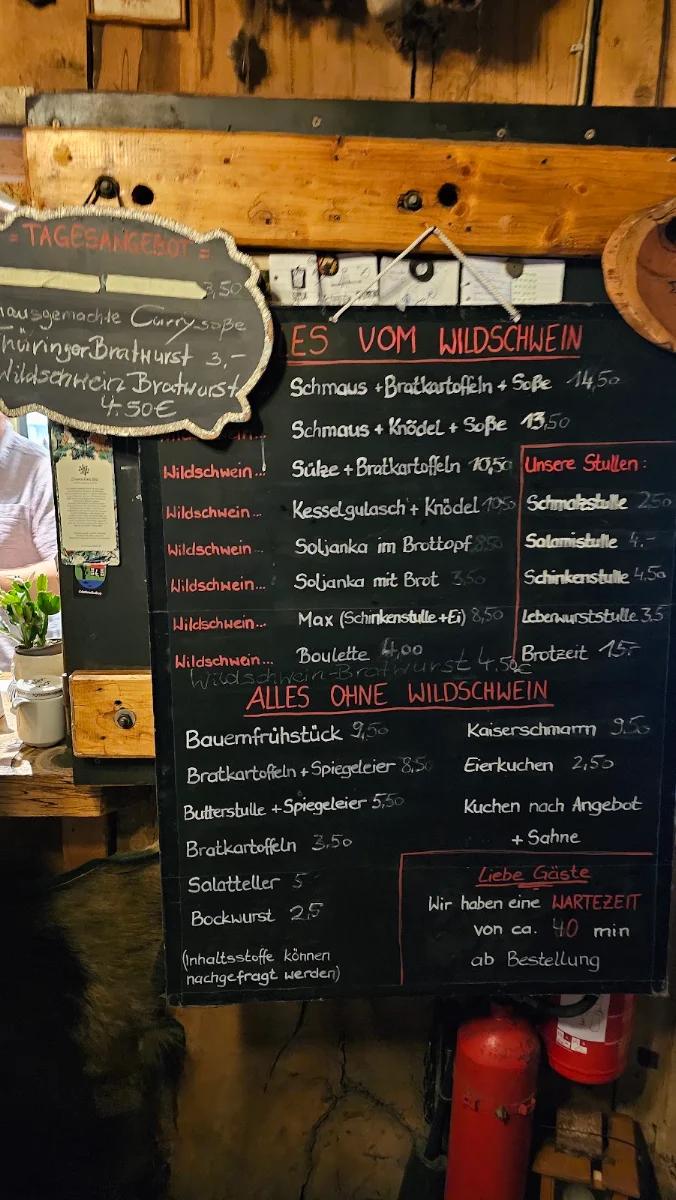 = TAGESANGEBOT =
3,50
hausgemachte Currysoße
Thüringer Bratwurst 3,-
Wildschwein Bratwurst
4.50€
ES VOM WILDSCHWEIN
Schmaus + Bratkartoffeln + Soße 14,50
Schmaus + Knödel + Soße 13,50
Wildschwein... Sülze + Bratkartoffeln 10,50
Wildschwein... Kesselgulasch + Knödel 10,50
Wildschwein... Soljanka im Brottopf 8,50
Wildschwein... Soljanka mit Brot 3,50
Wildschwein... Max (Schinkenstulle + Ei) 8,50
Wildschwein... Boulette 4,00
Wildschwein-Bratwurst 4,50€
Unsere Stullen:
Schmalzstulle 2,50
Salamistulle 4.-
Schinkenstulle 4,50
Leberwurststulle 3,5
Brotzeit 15.-
ALLES OHNE WILDSCHWEIN
Bauernfrühstück 9,50
Bratkartoffeln + Spiegeleier 8,50
Butterstulle + Spiegeleier 5,50
Bratkartoffeln 3,50
Salatteller 5
Bockwurst 2,5
(Inhaltsstoffe können
nachgefragt werden)
Kaiserschmarrn 9.50
Eierkuchen 2,50
Kuchen nach Angebot
+ Sahne
Liebe Gäste
Wir haben eine WARTEZEIT
von ca. 40 min
ab Bestellung